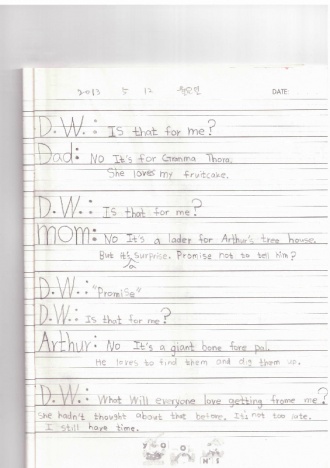 2013 5 12
DATE:
D.W.: Is that for me?
Dad: No It's for Gramma Thora.
She loves my fruitcake.
D.W.: Is that for me?
mom: No It's a lader for Arthur's tree house.
But it's surprise. Promise not to tell him?
D.W.: "Promise"
D.W.: Is that for me?
Arthur: No It's a giant bone fore pal.
He loves to find them and dig them up.
D.W.: What will everyone love getting frome me?
She hadn't thought about that before. It's not too late.
I still have time.